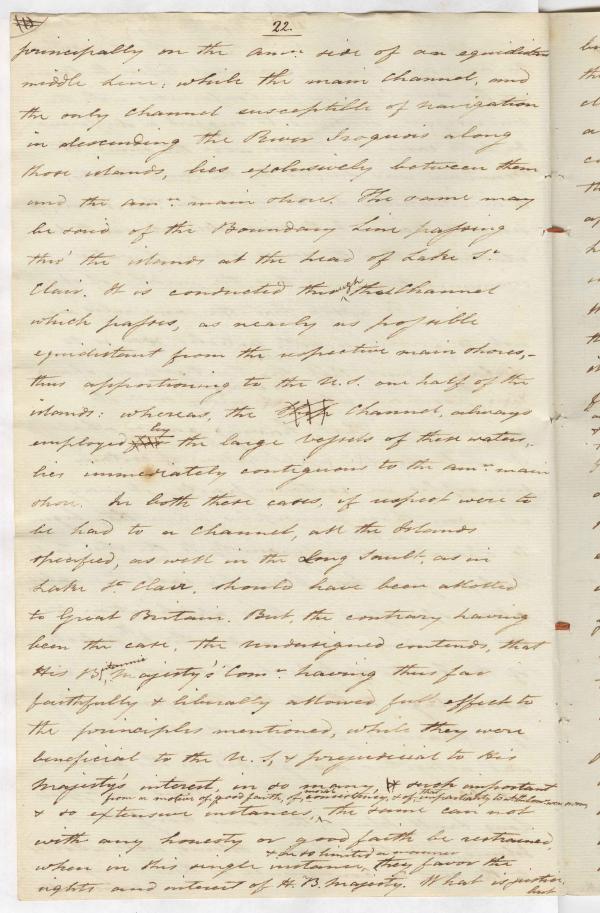 22.
principally on the amn. side of an equidistan
middle line; while the main channel, and
the only channel susceptible of navigation
in descending the River Iroquois along
those islands, lies exclusively between them
and the amn. main shore. The same may
be said of the Boundary Line passing
thro' the islands at the head of Lake St.
Clair. It is conducted through the Channel
which passes, as nearly as possible
equidistant from the respective main shores,-
thus apportioning to the U.S. one half of the
islands: whereas, the Channel, always
employed by the large vessels of these waters,
lies immediately contiguous to the amn. main
shore. In both these cases, if respect were to
be had to a Channel, all the Islands
specified, as well in the Long Sault, as in
Lake St. Clair, should have been allotted
to Great Britain. But, the contrary having
been the case, the undersigned contends, that
His Britannic Majesty's Comr. having thus far
faithfully & liberally allowed full effect to
the principles mentioned, while they were
beneficial to the U.S, & prejudicial to His
Majesty's interest, in so many, such important
from a motive of good faith, of consistency, & of impartiality
& so extensive instances, the same can not
with any honesty or good faith be restrained
& in so limited a manner
when in this single instance, they favor the
rights and interest of H. B. Majesty. What is justice,
but